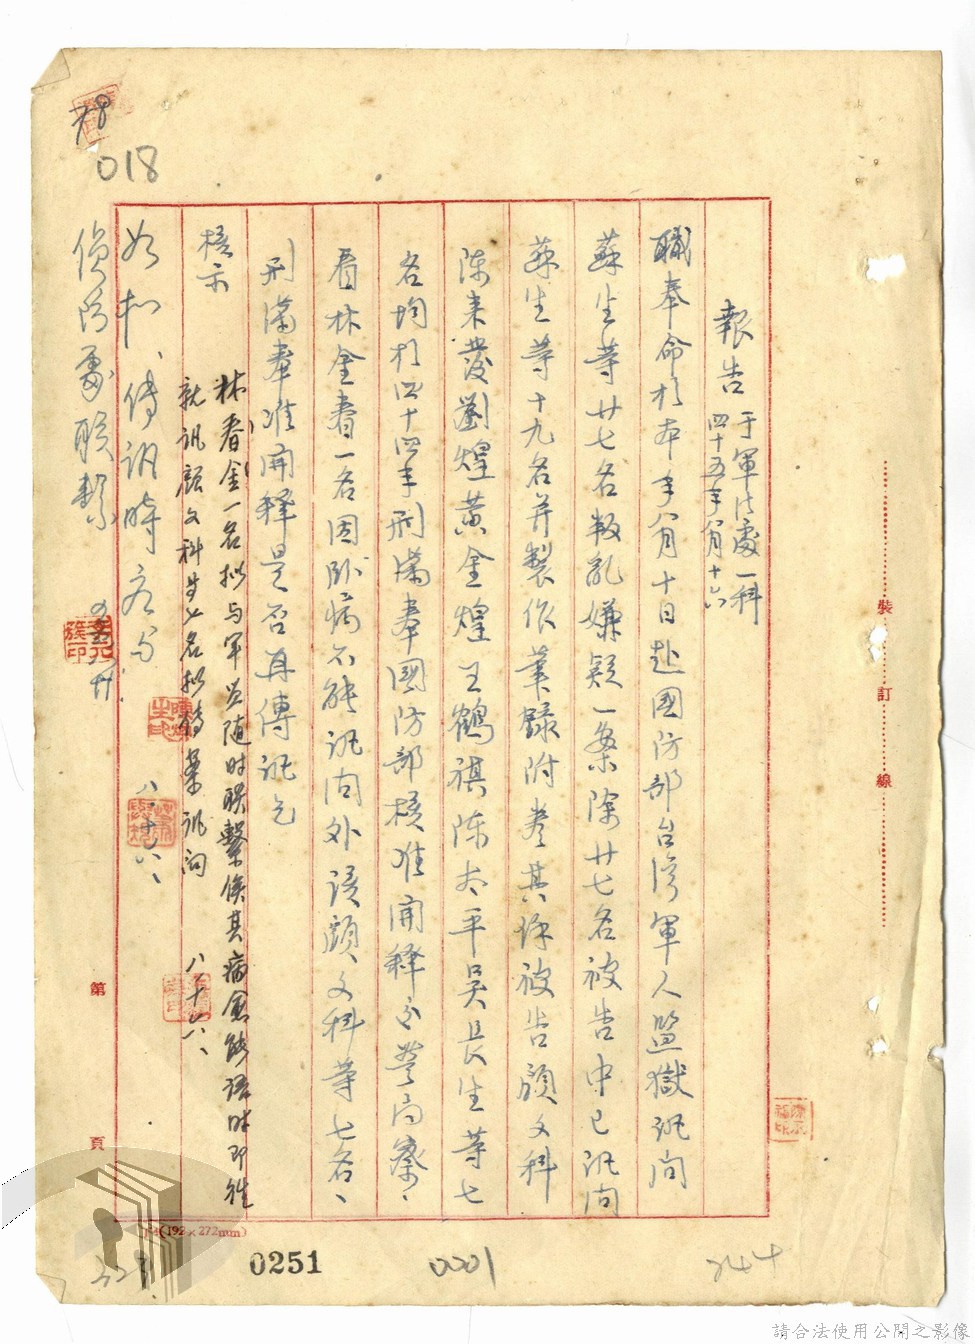 報告 于軍法處一科
四十五年八月十六
職奉命於本年八月十日赴國防部台灣軍人監獄訊問
蘇生等廿七名叛亂嫌疑一案除廿七名被告中已訊問
蘇生等十九名并製作筆錄附卷其餘被告顏文科
陳來發劉煌黃金煌王鶴祺陳太平吳長生等七
名均於四十四年刑滿奉國防部核准開釋
看林金春一名因臥病不能訊問外該顏文科等七名、
刑滿奉准開釋是否再傳訊乞
核示
林春金一名拟与軍監随时联繫俟其病愈能语时即往
就訊顏文科等七名拟傳案訊問
八、十六、
八、十六、
如拟、傳訊時應与
偵防處联繫
78
018
裝
訂
線
第
頁
(192×272mm)
0251
0001
244
請合法使用公開之影像